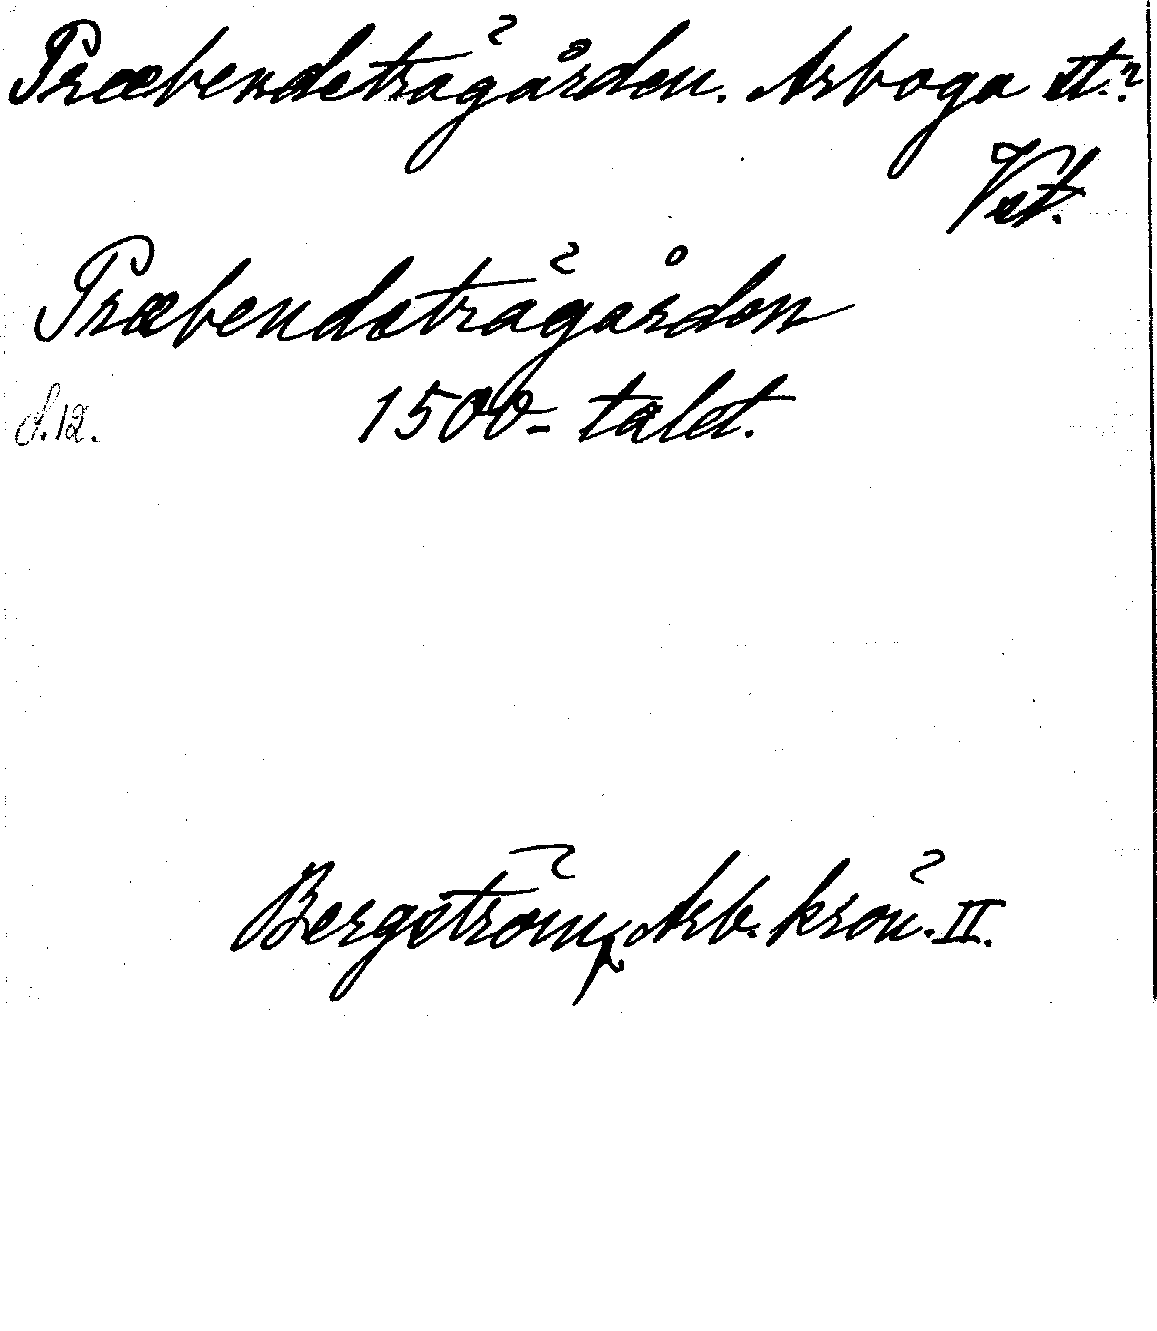 Præbendeträgården. Arboga st.?
Vst.
Præbendeträgården
s.12. 1500-talet.
Bergström, Arb. krön. II.